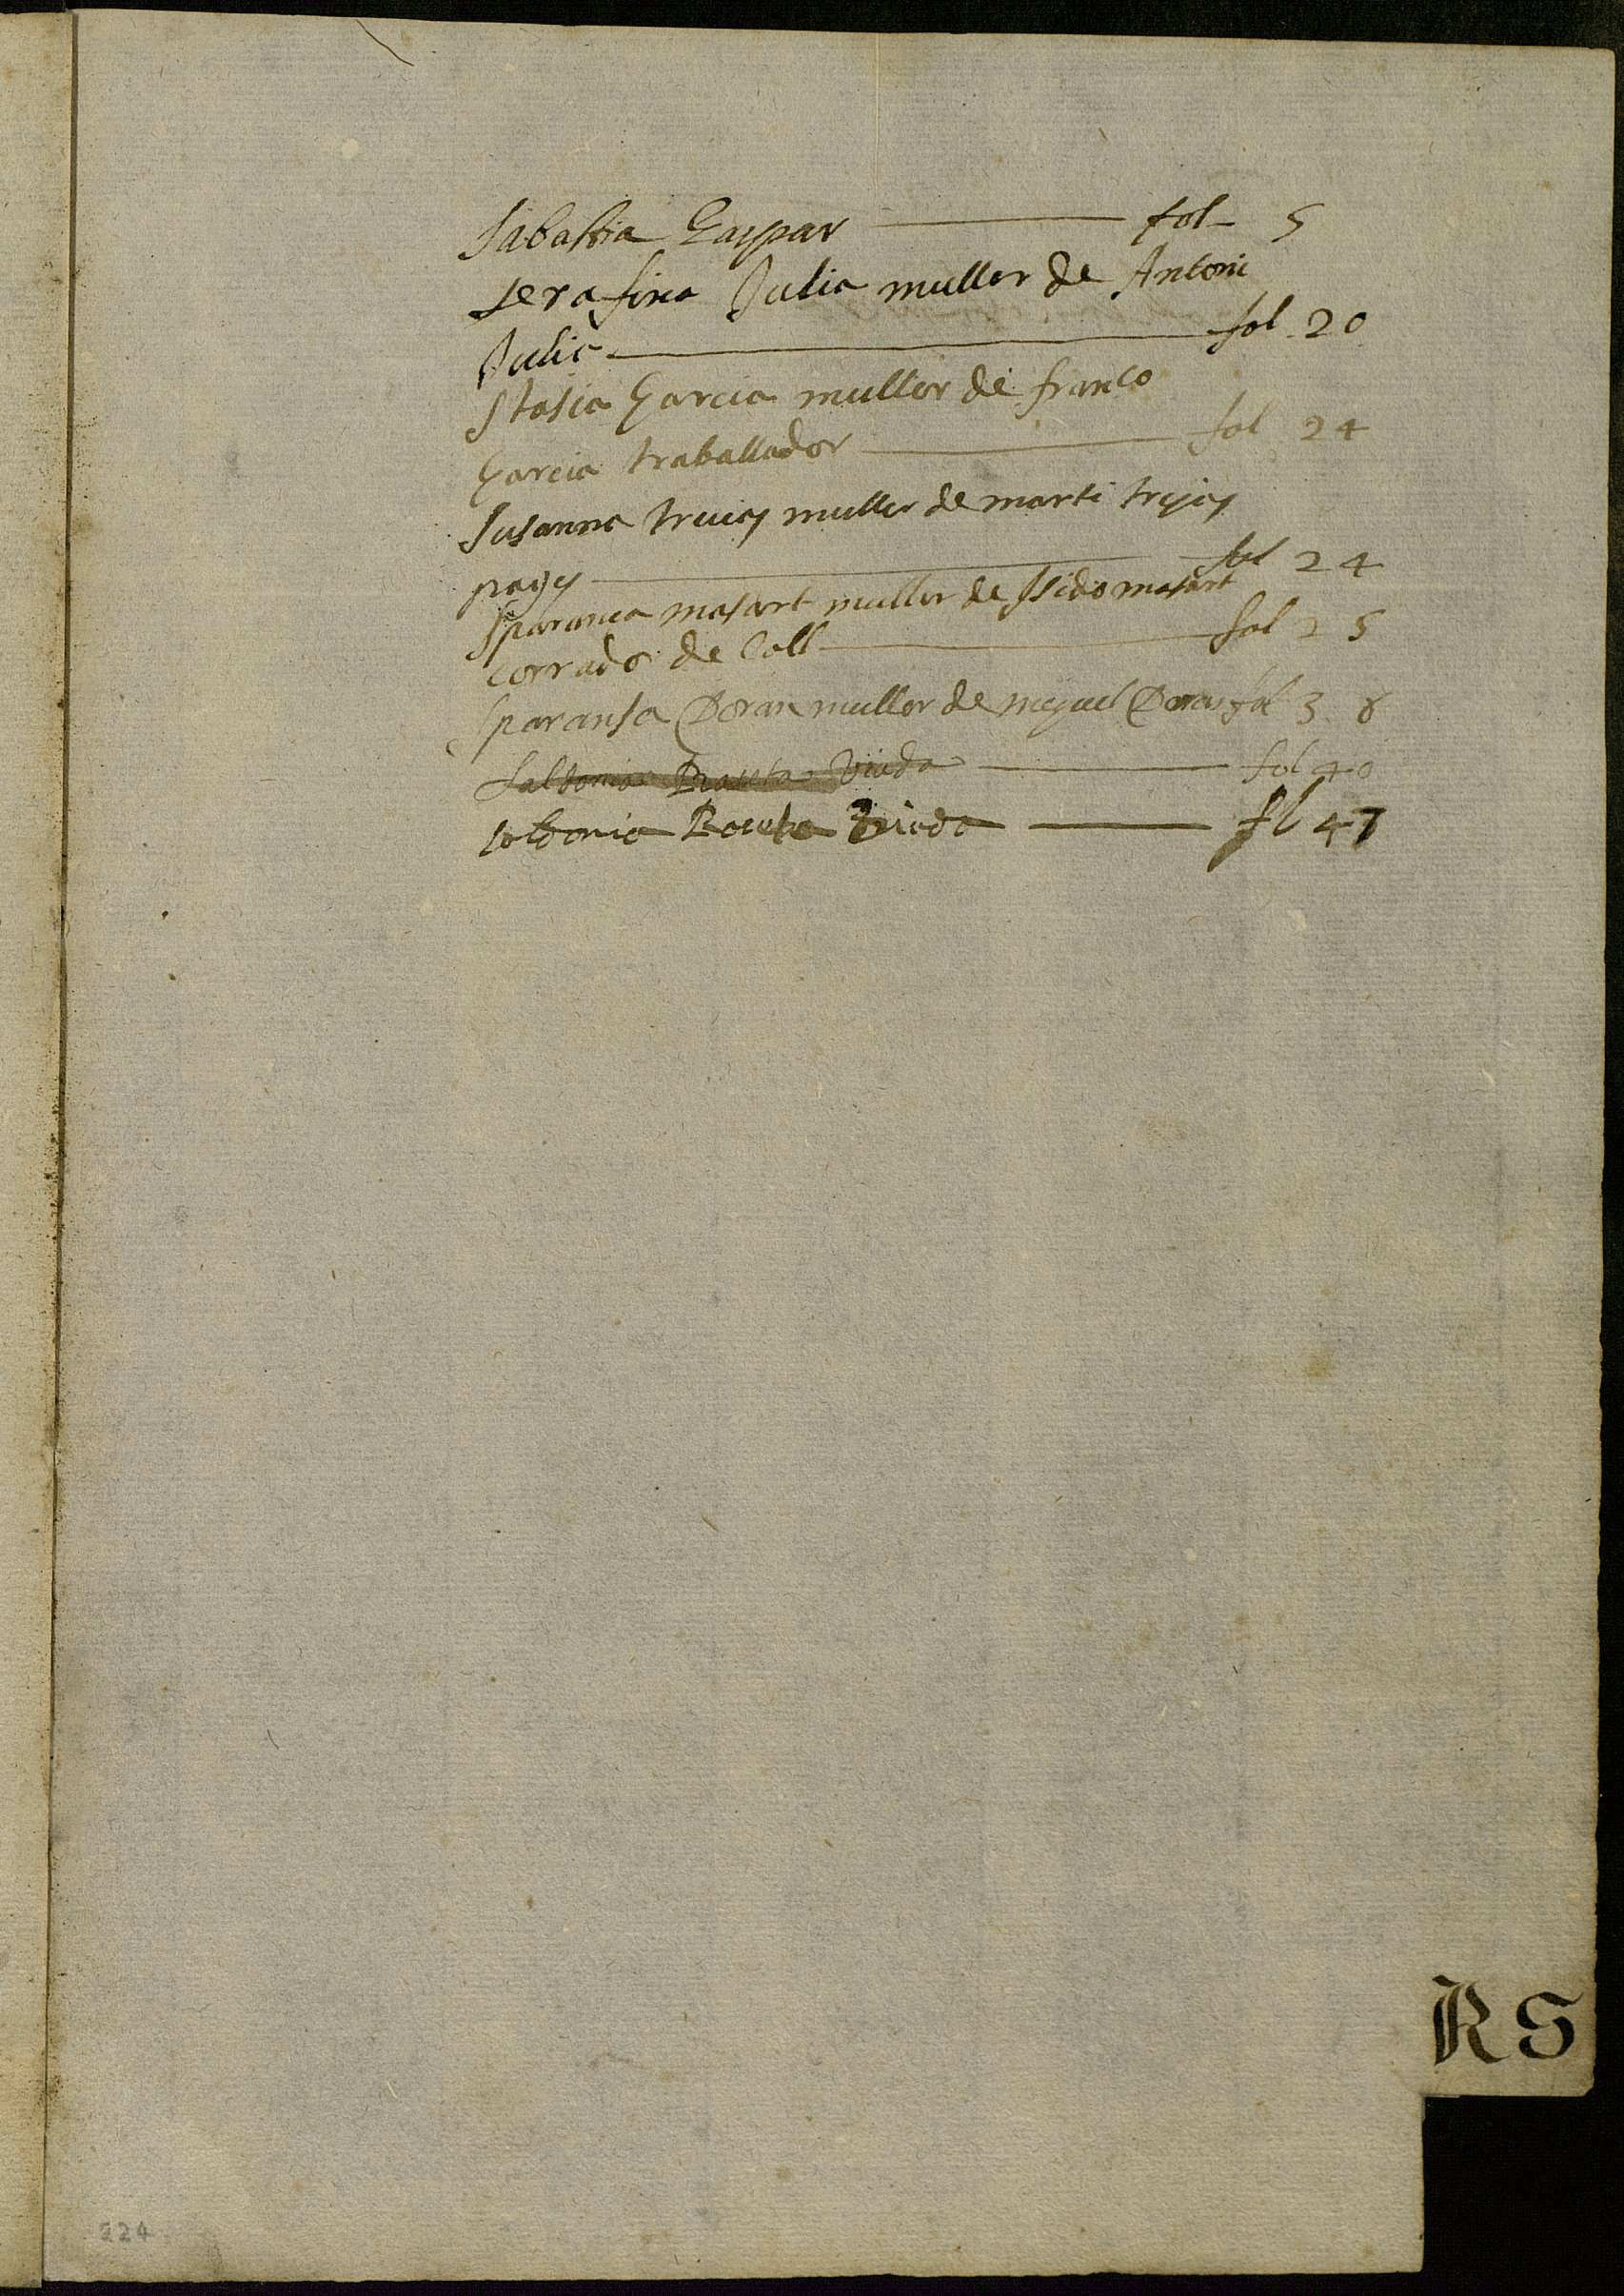 Sabastia Gaspar fol 5
serafina Julia muller de Antoni
Julia fol 20
Stasia Garcia muller de franco
Garcia traballador fol 24
Susanna muller de marti
pages fol 24
Sparanca masart muller de Isido masart
corrado de Coll fol 25
Sparansa Doran muller de miquel Doran fol 38
Viuda fol 40
Viuda fl 47
RS
224